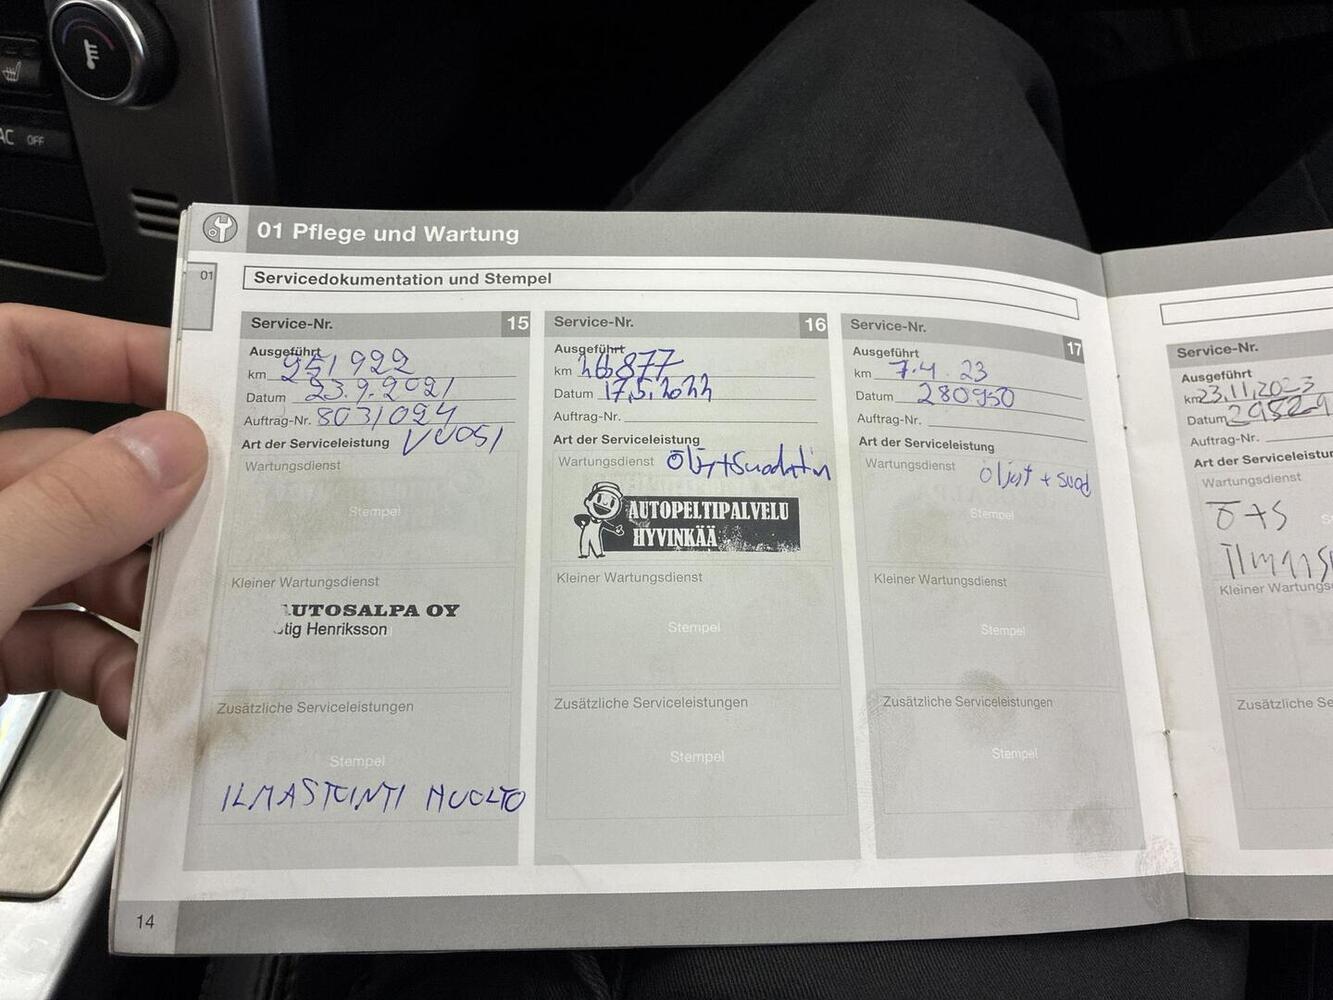 AC OFF
01 Pflege und Wartung
01
Servicedokumentation und Stempel
Service-Nr. 15
Ausgeführt
km 251 922
Datum 23.9.2021
Auftrag-Nr. 8031094
Art der Serviceleistung VUOSI
Wartungsdienst
Stempel
Kleiner Wartungsdienst
UTOSALPA OY
tig Henriksson
Zusätzliche Serviceleistungen
Stempel
ILMASTOINTI HUOLTO
14
Service-Nr. 16
Ausgeführt
km
Datum 17.5.2022
Auftrag-Nr.
Art der Serviceleistung
Wartungsdienst Öljyt+Suodatin
AUTOPELTIPALVELU
HYVINKÄÄ
Kleiner Wartungsdienst
Stempel
Zusätzliche Serviceleistungen
Stempel
Service-Nr. 17
Ausgeführt
km 7.4.23
Datum 280950
Auftrag-Nr.
Art der Serviceleistung
Wartungsdienst öljyt + suod
Stempel
Kleiner Wartungsdienst
Stempel
Zusätzliche Serviceleistungen
Stempel
Service-Nr.
Ausgeführt
km 23.11.2023
Datum
Auftrag-Nr.
Art der Serviceleistun
Wartungsdienst
Ö+S
Kleiner Wartungs
Zusätzliche Se